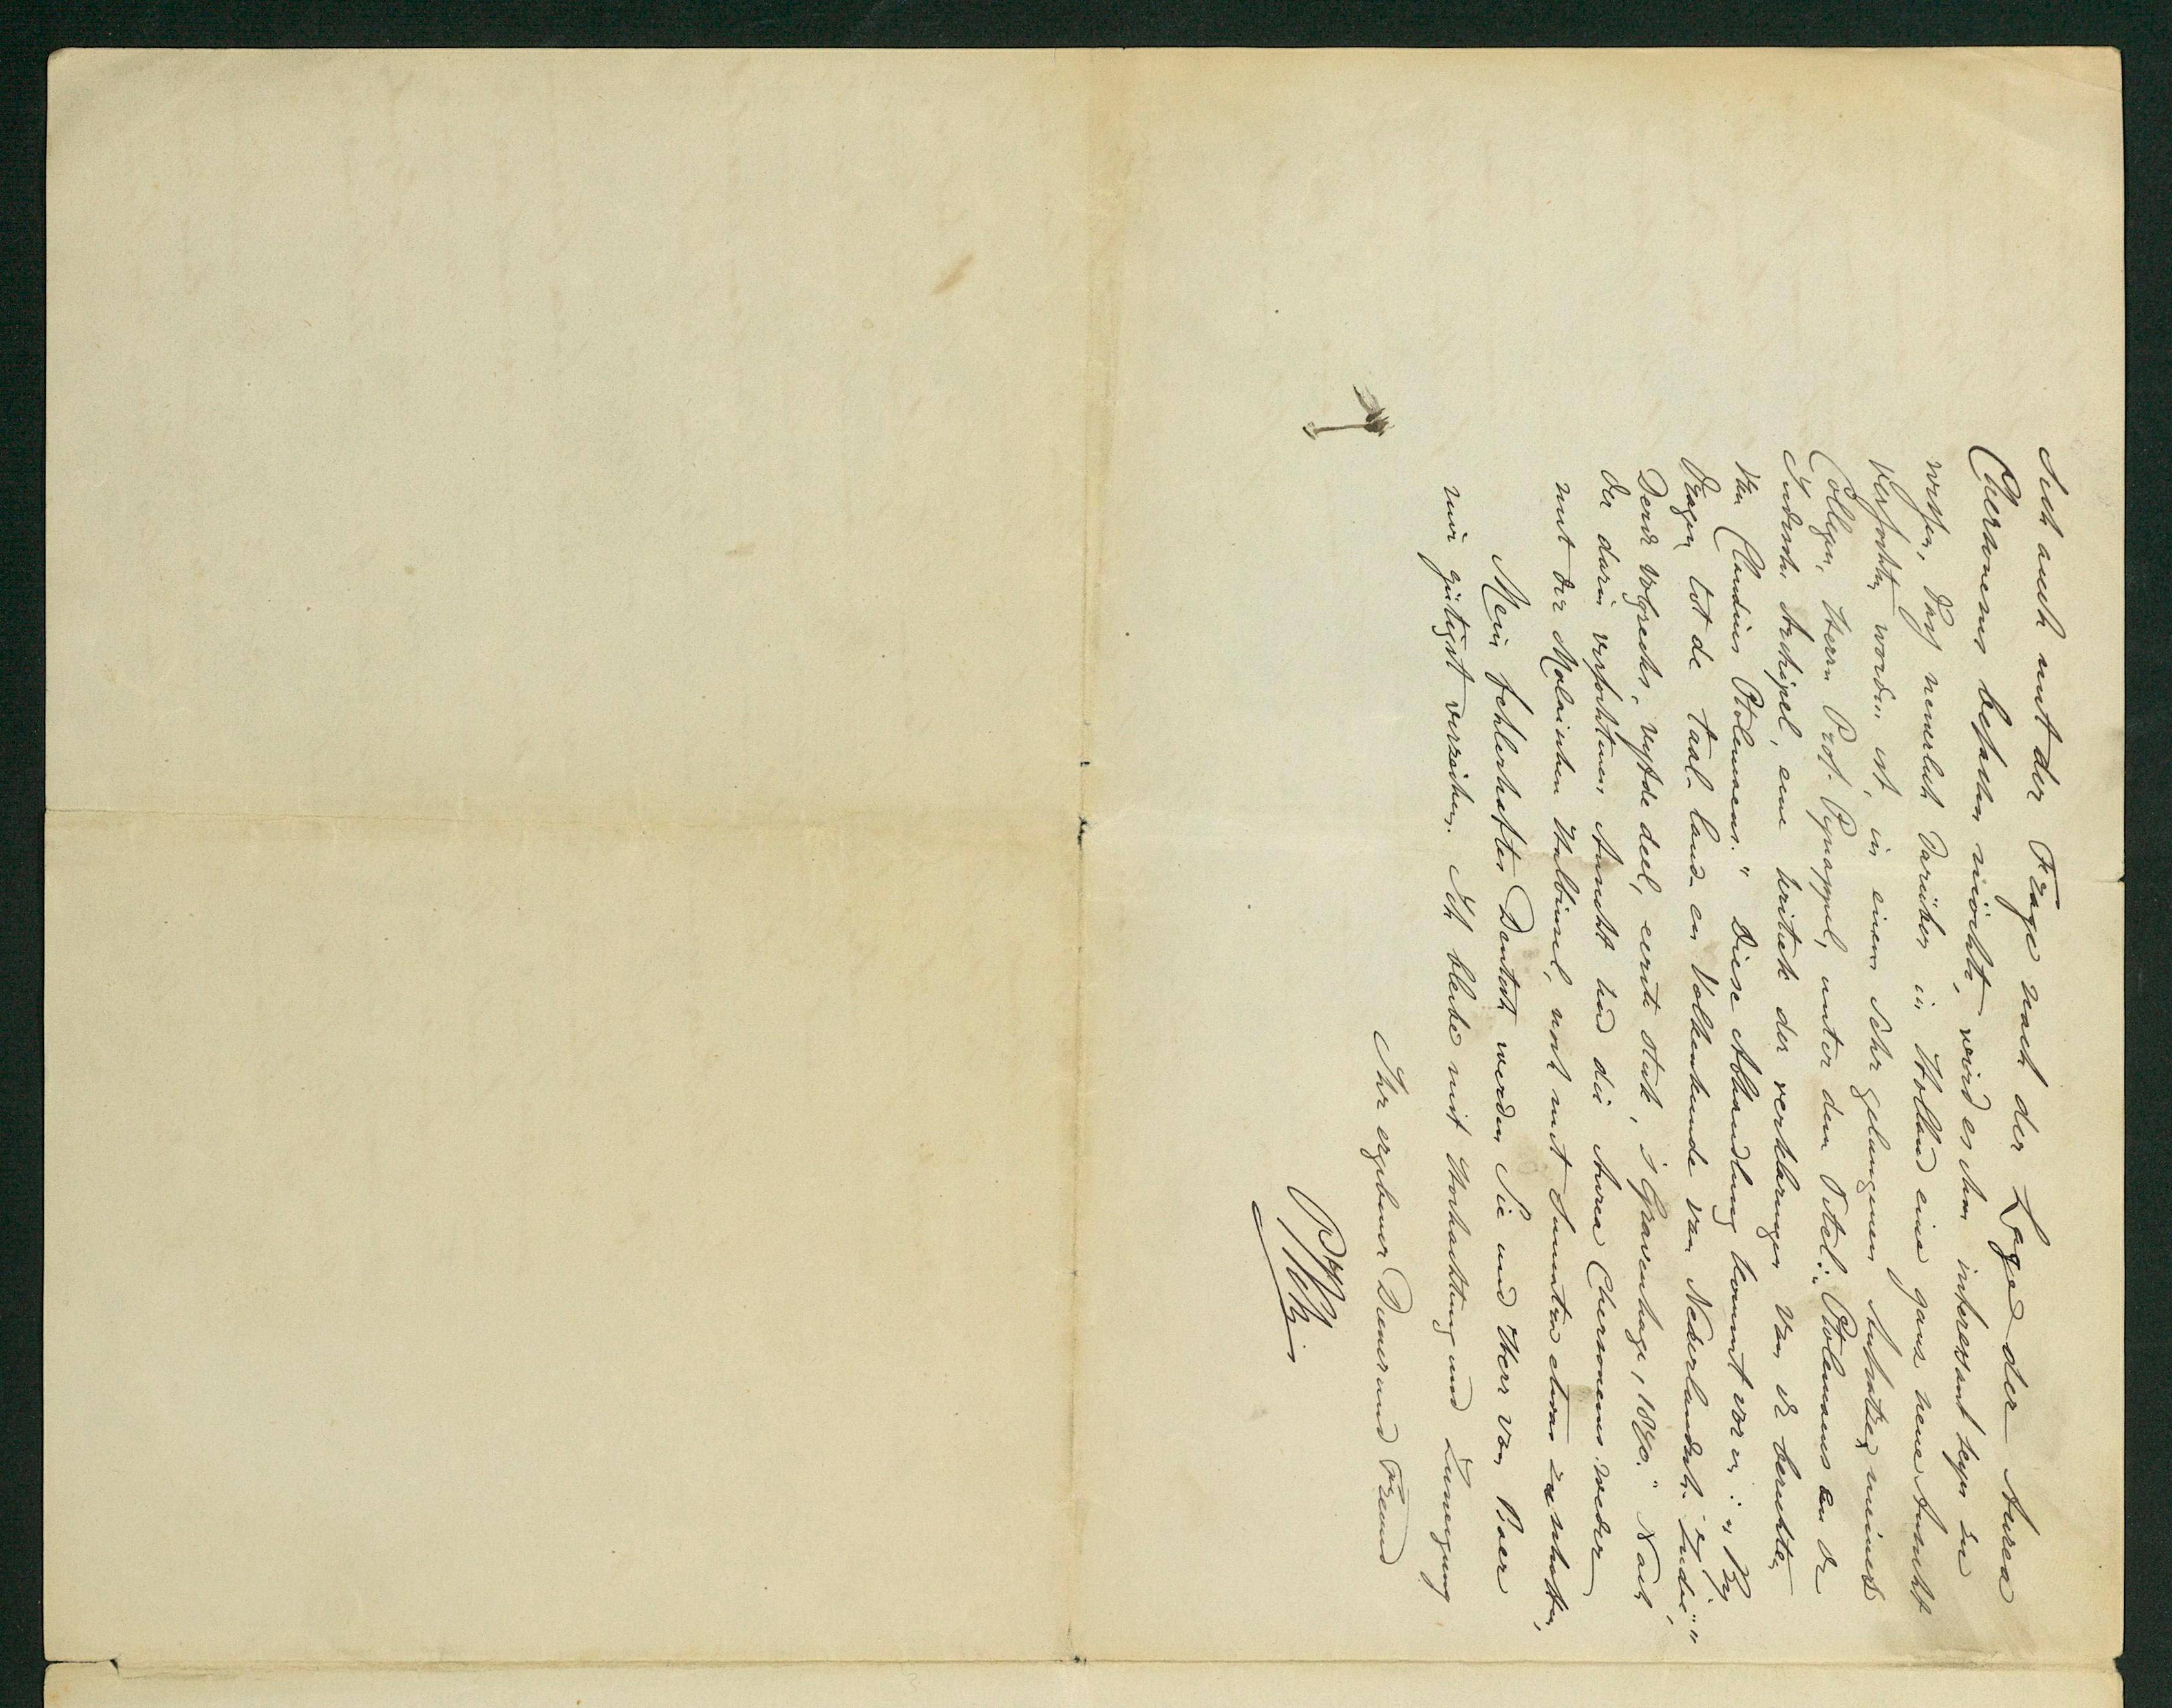 sich auch mit der Frage nach der Lage der Aurea
Chersonesus befassen möchte, wird es ihm interessant seyn zu
wissen, dasz neuerlich darüber in Holland eine ganz neue Ansicht
verfochten worden ist, in einem sehr gelungenen Aufsatze meines
Collegen, Herrn Prof. Pynappel, unter dem Titel: „Ptolemaeus en de
Indische Archipel, eene kritiek der verklaringen van de berichten
van Claudius Ptolemaeus." Diese Abhandlung kommt vor in: „Bij
dragen tot de taal- land- en Volkenkunde van Nederlandsch Indië",
Derde Volgreeks, vyfde deel, eerste stuk, 's Gravenhage, 1870." Nach
der darin verfochtenen Ansicht hat die Aurea Chersonesus weder
mit der Malaischen Halbinsel, noch mit Sumatra etwas zu schaffen.
Mein fehlerhaftes Deutsch werden Sie und Herr von Baer
mir gütigst verzeihen. Ich bleibe mit Hochachtung und Zuneigung
Ihr ergebener Diener und Freund
PJVeth